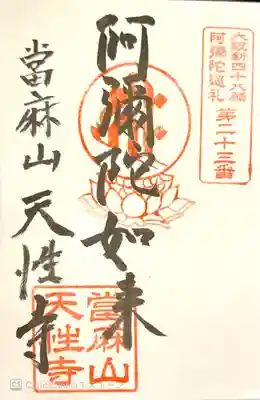 大阪新四十八願
阿彌陀巡礼
第二十三番
阿彌陀如来
當麻山天性寺
當麻山
天性寺